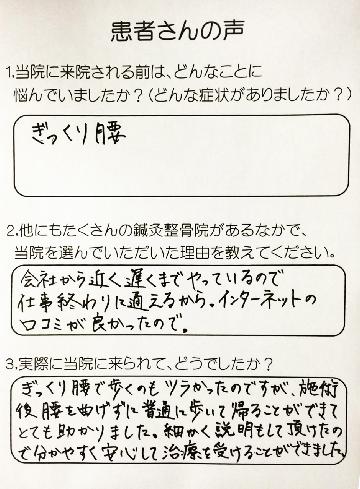 患者さんの声
1.当院に来院される前は、どんなことに
悩んでいましたか？（どんな症状がありましたか？）
ぎっくり腰
2.他にもたくさんの鍼灸整骨院があるなかで、
当院を選んでいただいた理由を教えてください。
会社から近く遅くまでやっているので
仕事終わりに通えるから。インターネットの
口コミが良かったので。
3.実際に当院に来られて、どうでしたか？
ぎっくり腰で歩くのもツラかったのですが、施術
後腰を曲げずに普通に歩いて帰ることができて
とても助かりました。細かく説明もして頂けたの
で分かりやすく安心して治療を受けることができました。